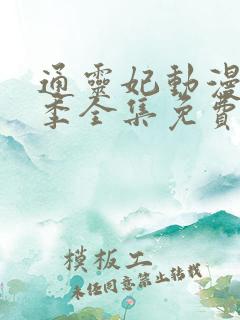 通靈妃動漫
季全集免費
模板工
未經同意禁止轉載